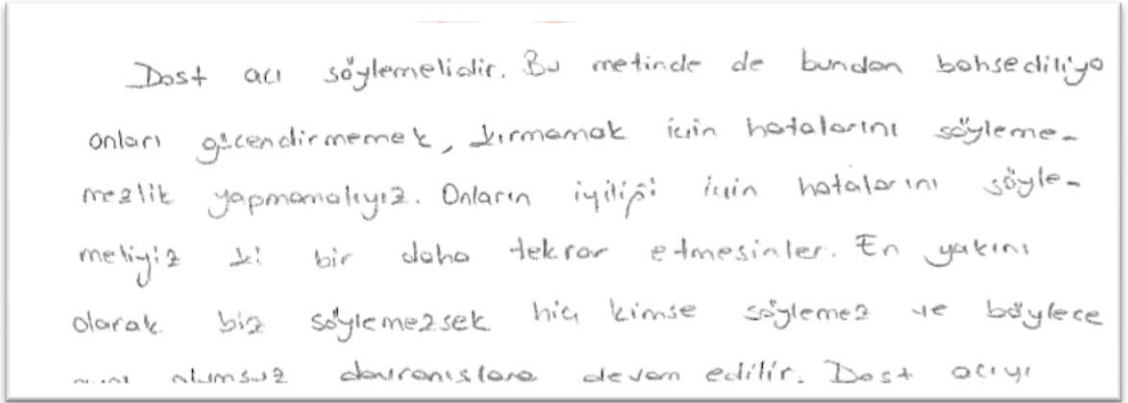 Dost acı söylemelidir. Bu metinde de bundan bahsediliyo
onları gücendirmemek, kırmamak için hatalarını söyleme-
mezlik yapmamalıyız. Onların iyiliği için hatalarını söyle-
meliyiz ki bir daha tekrar etmesinler. En yakını
olarak biz söylemezsek hiç kimse söylemez ve böylece
olumsuz davranışlara devam edilir. Dost acıyı